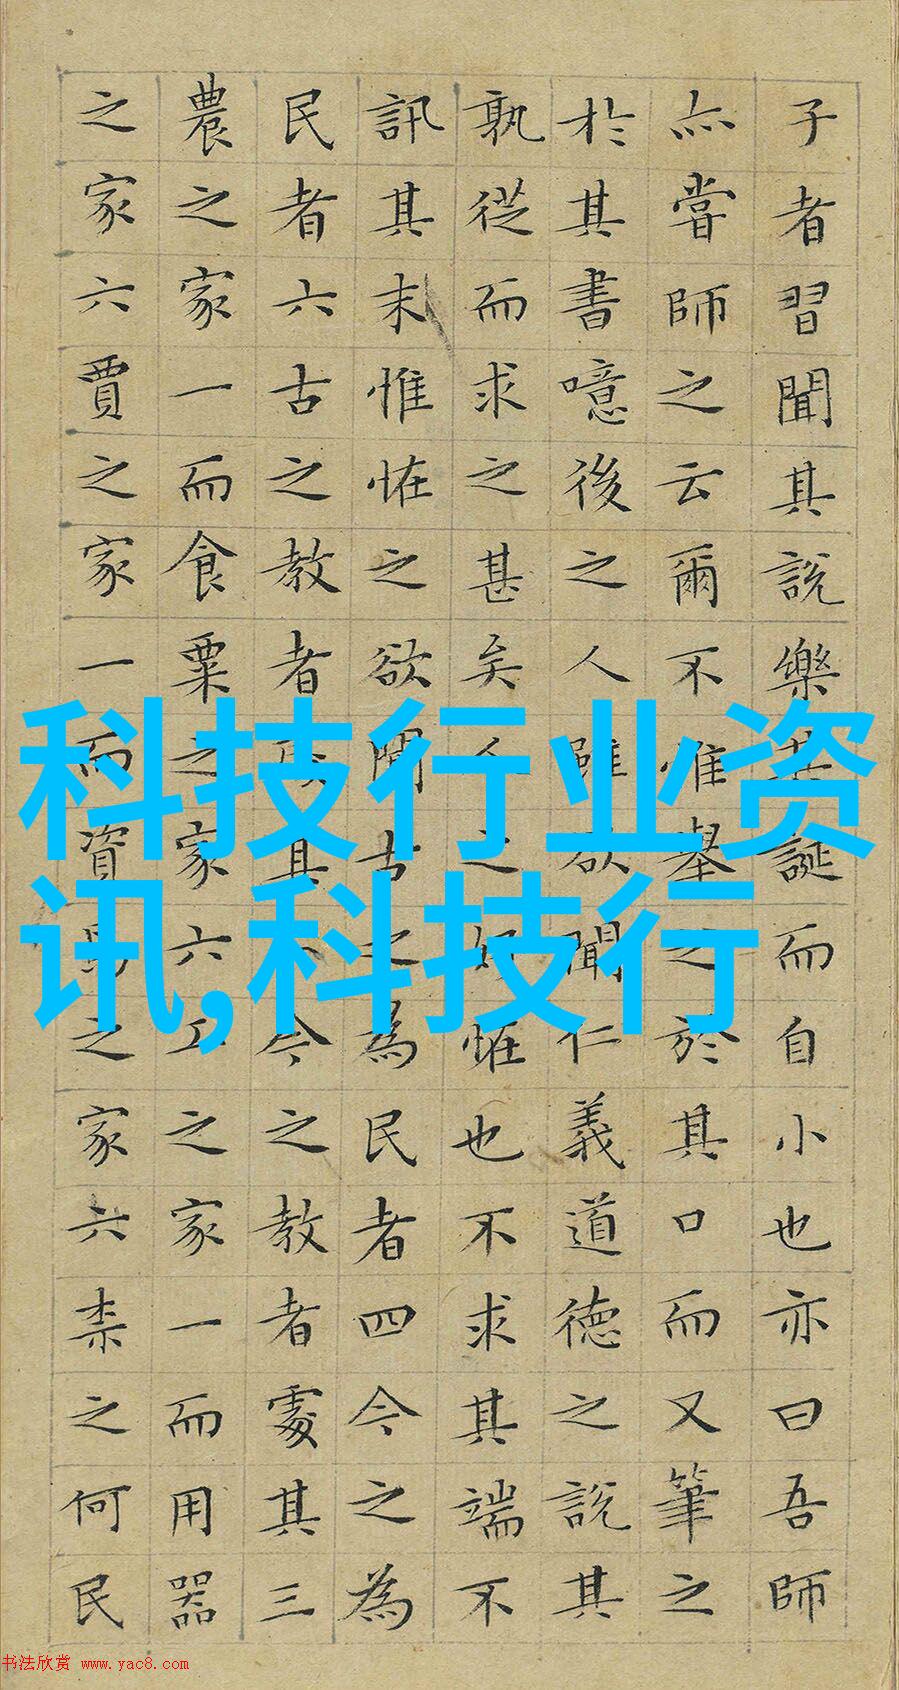 子者習聞其說樂其誕而自小也亦曰吾師
亦嘗師之云爾不惟舉之於其口而又筆之
於其書噫後之人雖欲聞仁義道德之說其
孰從而求之甚矣人之好怪也不求其端不
訊其末惟怪之欲聞古之為民者四今之為
民者六古之教者處其今之教者處其三
農之家一而食粟之家六工之家一而用器
之家六賈之家一而資焉之家六柰之何民
科技行业资
讯,科技行
书法欣赏 www.yac8.com